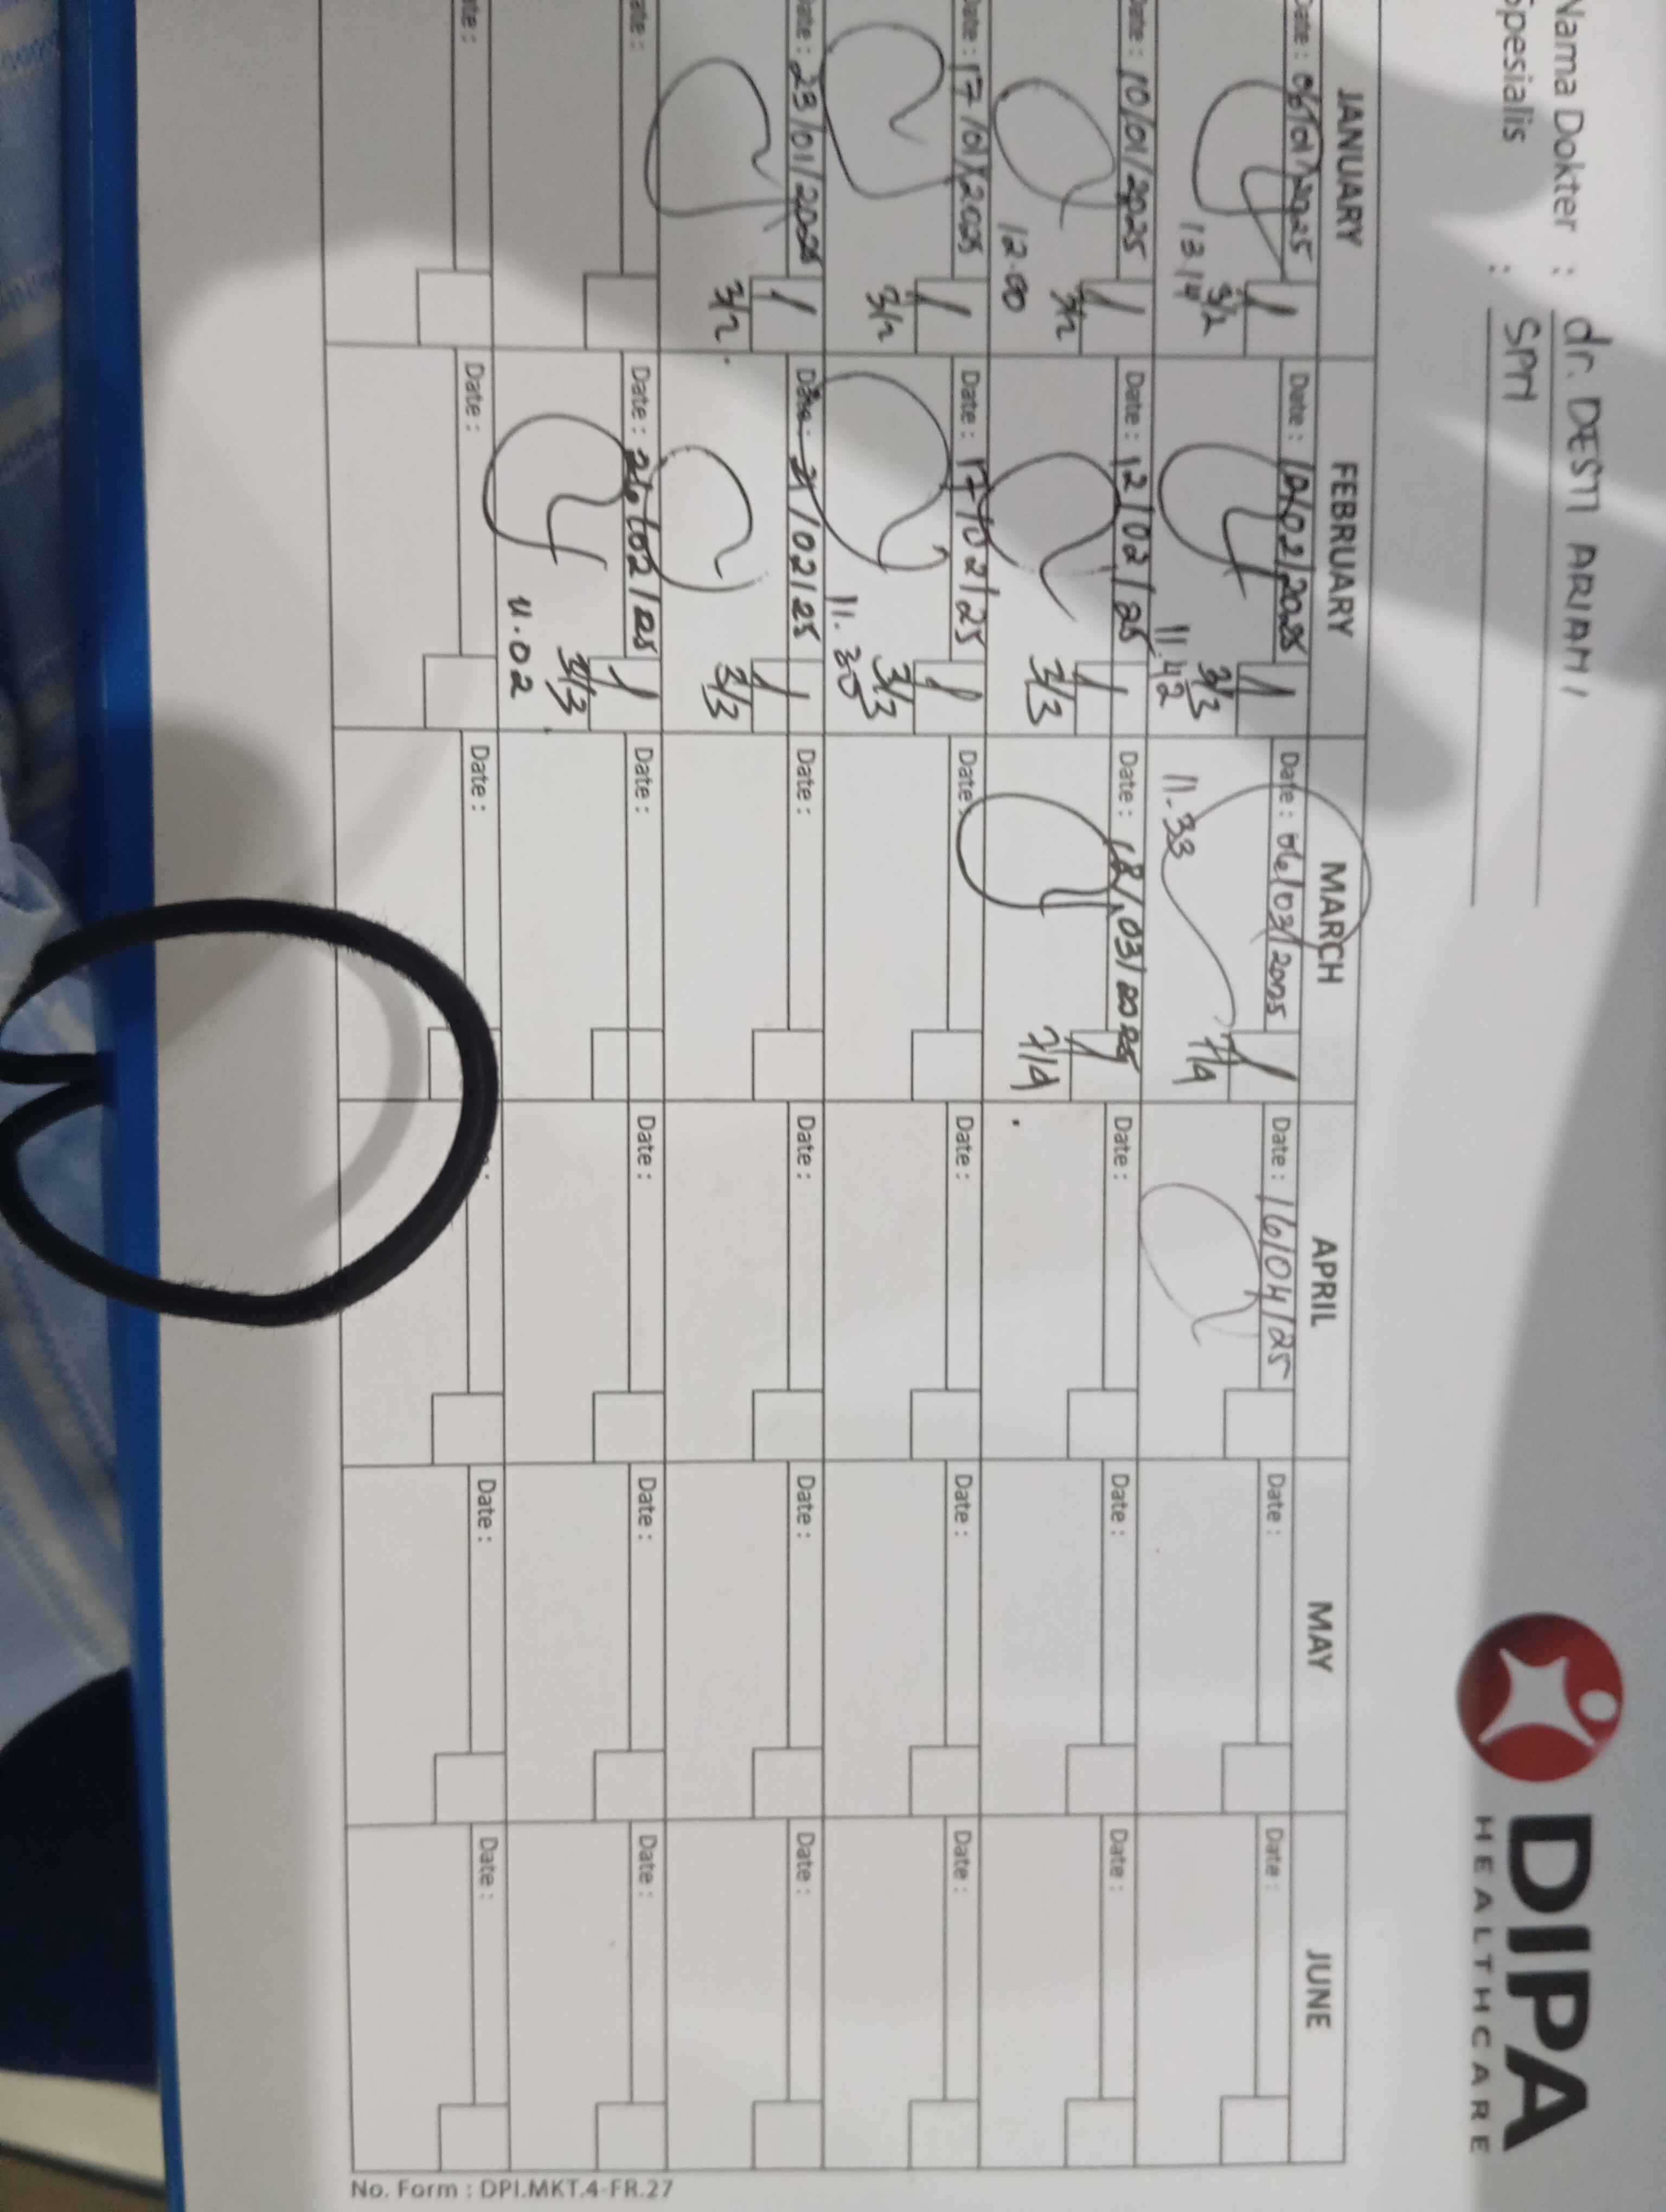 Nama Dokter : dr. DESTI ARIANI
Spesialis : SPM
DIPA
HEALTHCARE
JANUARY FEBRUARY MARCH APRIL MAY JUNE
Date : 06/01/2025 Date : 10/02/2025 Date : 06/03/2025 Date : 16/04/25 Date : Date :
13.14 3/2 11.42 3/3 11.33 7/4
Date : 10/01/2025 Date : 12/02/25 Date : 18/03/2025 Date : Date : Date :
12.00 3/2 3/3 7/4
Date : 17/01/2025 Date : 17/02/25 Date : Date : Date : Date :
3/2 11.30 3/3
Date : 23/01/2025 Date : 21/02/25 Date : Date : Date : Date :
3/2 3/3
Date : Date : 26/02/25 Date : Date : Date : Date :
11.02 3/3
Date : Date : Date : Date : Date :
No. Form : DPI.MKT.4-FR.27